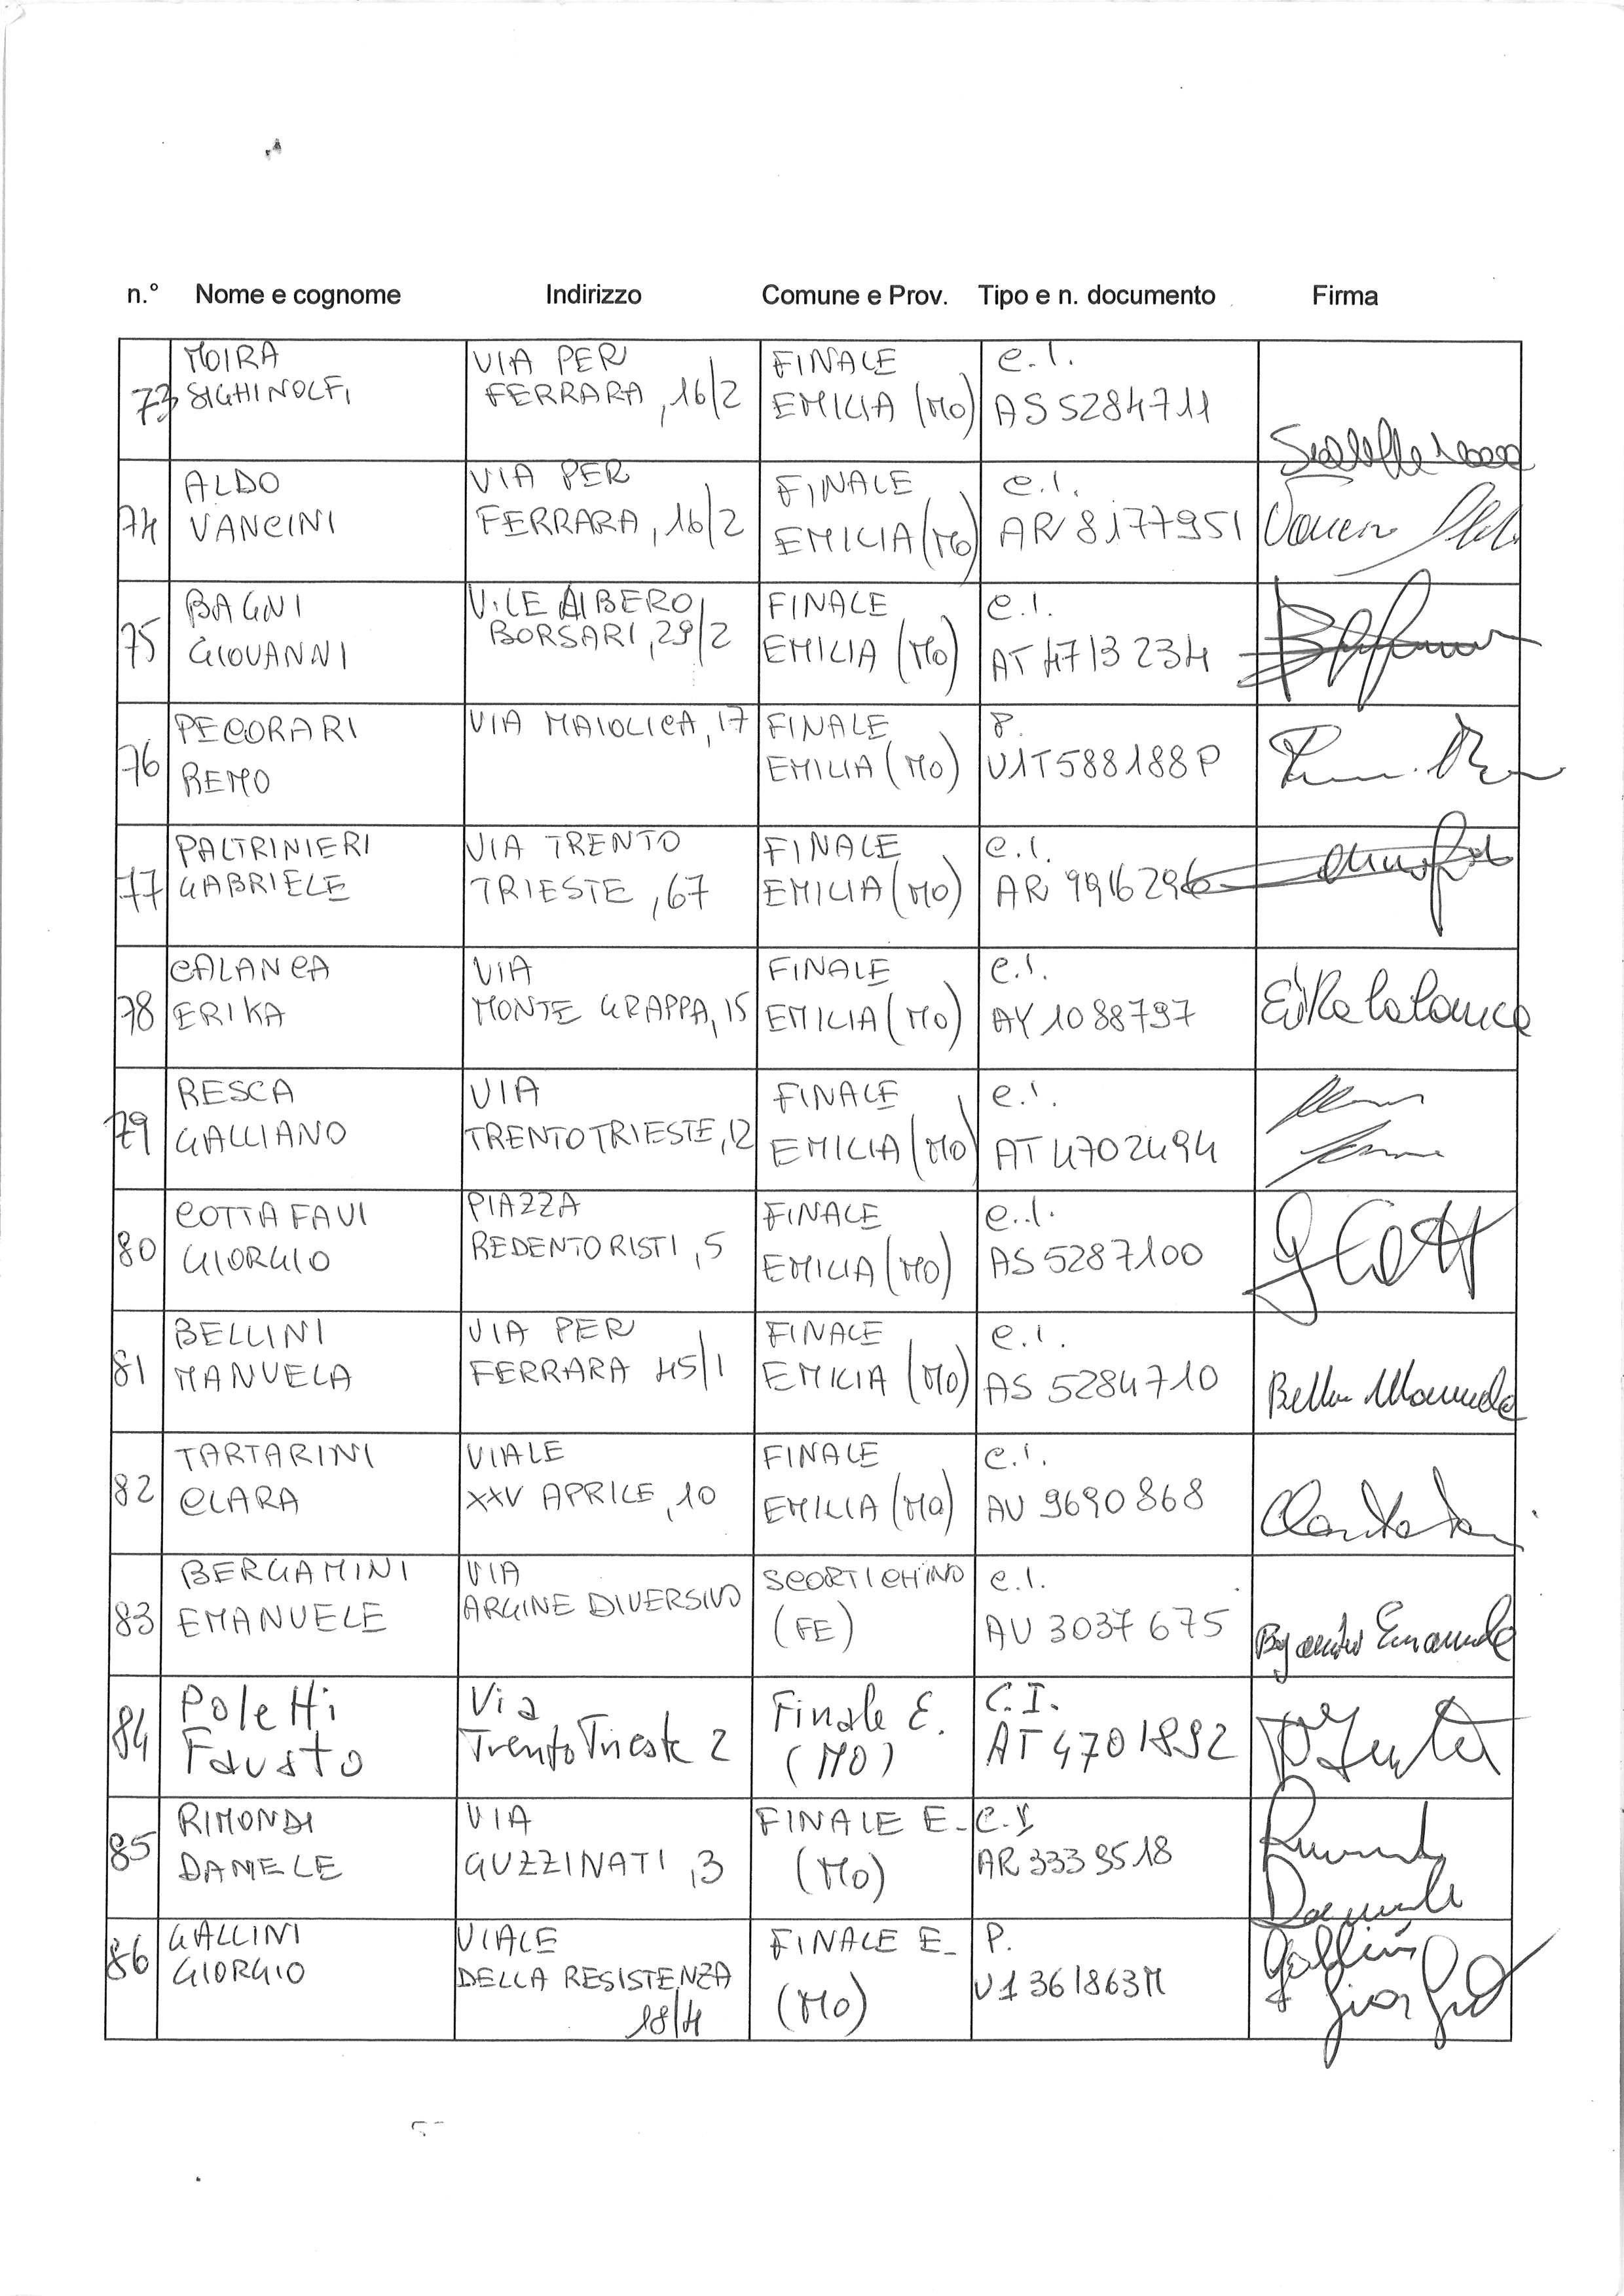 n.° Nome e cognome Indirizzo Comune e Prov. Tipo e n. documento Firma
73 MOIRA SIGHINOLFI VIA PER FERRARA, 16/2 FINALE EMILIA (MO) C.I. AS 5284711
74 ALDO VANCINI VIA PER FERRARA, 16/2 FINALE EMILIA (MO) C.I. AR 8177951
75 BAGNI GIOVANNI V.LE ALBERO BORSARI, 29/2 FINALE EMILIA (MO) C.I. AT 4713234
76 PECORARI REMO VIA MAIOLICA, 17 FINALE EMILIA (MO) P. U1T588188P
77 PALTRINIERI GABRIELE VIA TRENTO TRIESTE, 67 FINALE EMILIA (MO) C.I. AR 9916296
78 CALANCA ERIKA VIA MONTE GRAPPA, 15 FINALE EMILIA (MO) C.I. AY 1088797 Erika Calanca
79 RESCA GALLIANO VIA TRENTO TRIESTE, 12 FINALE EMILIA (MO) C.I. AT 4702494
80 COTTAFAVI GIORGIO PIAZZA REDENTORISTI, 5 FINALE EMILIA (MO) C.I. AS 5287100 G Cott
81 BELLINI MANUELA VIA PER FERRARA 45/1 FINALE EMILIA (MO) C.I. AS 5284710 Manuela
82 TARTARINI CLARA VIALE XXV APRILE, 10 FINALE EMILIA (MO) C.I. AU 9690868
83 BERGAMINI EMANUELE VIA ARGINE DIVERSIVO SCORTICHINO (FE) C.I. AU 3037675 Emanuele
84 Poletti Fausto Via Trento Trieste 2 Finale E. (MO) C.I. AT 4701892
85 RIMONDI DANIELE VIA GUZZINATI, 3 FINALE E. (MO) C.I. AR 3339518
86 GALLINI GIORGIO VIALE DELLA RESISTENZA 18/4 FINALE E. (MO) P. U1361863M Gallini Giorgio